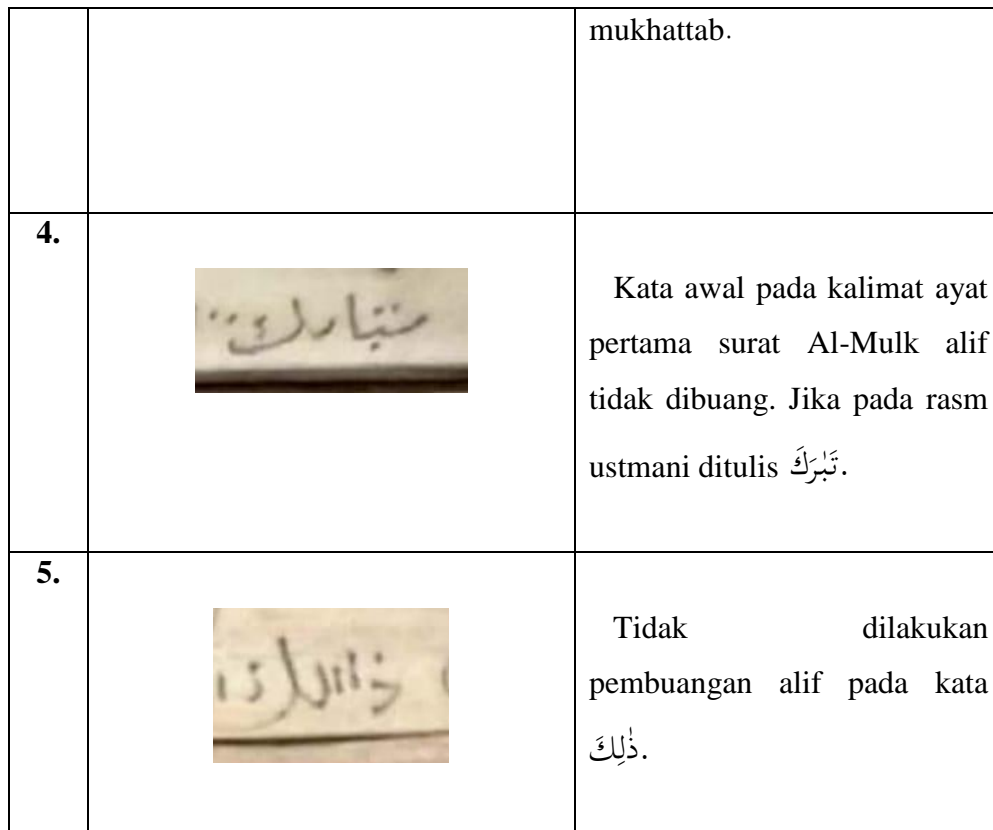 mukhattab.
4.
تبارك
Kata awal pada kalimat ayat
pertama surat Al-Mulk alif
tidak dibuang. Jika pada rasm
ustmani ditulis تَبٰرَكَ.
5.
ذالك
Tidak dilakukan
pembuangan alif pada kata
ذٰلِكَ.